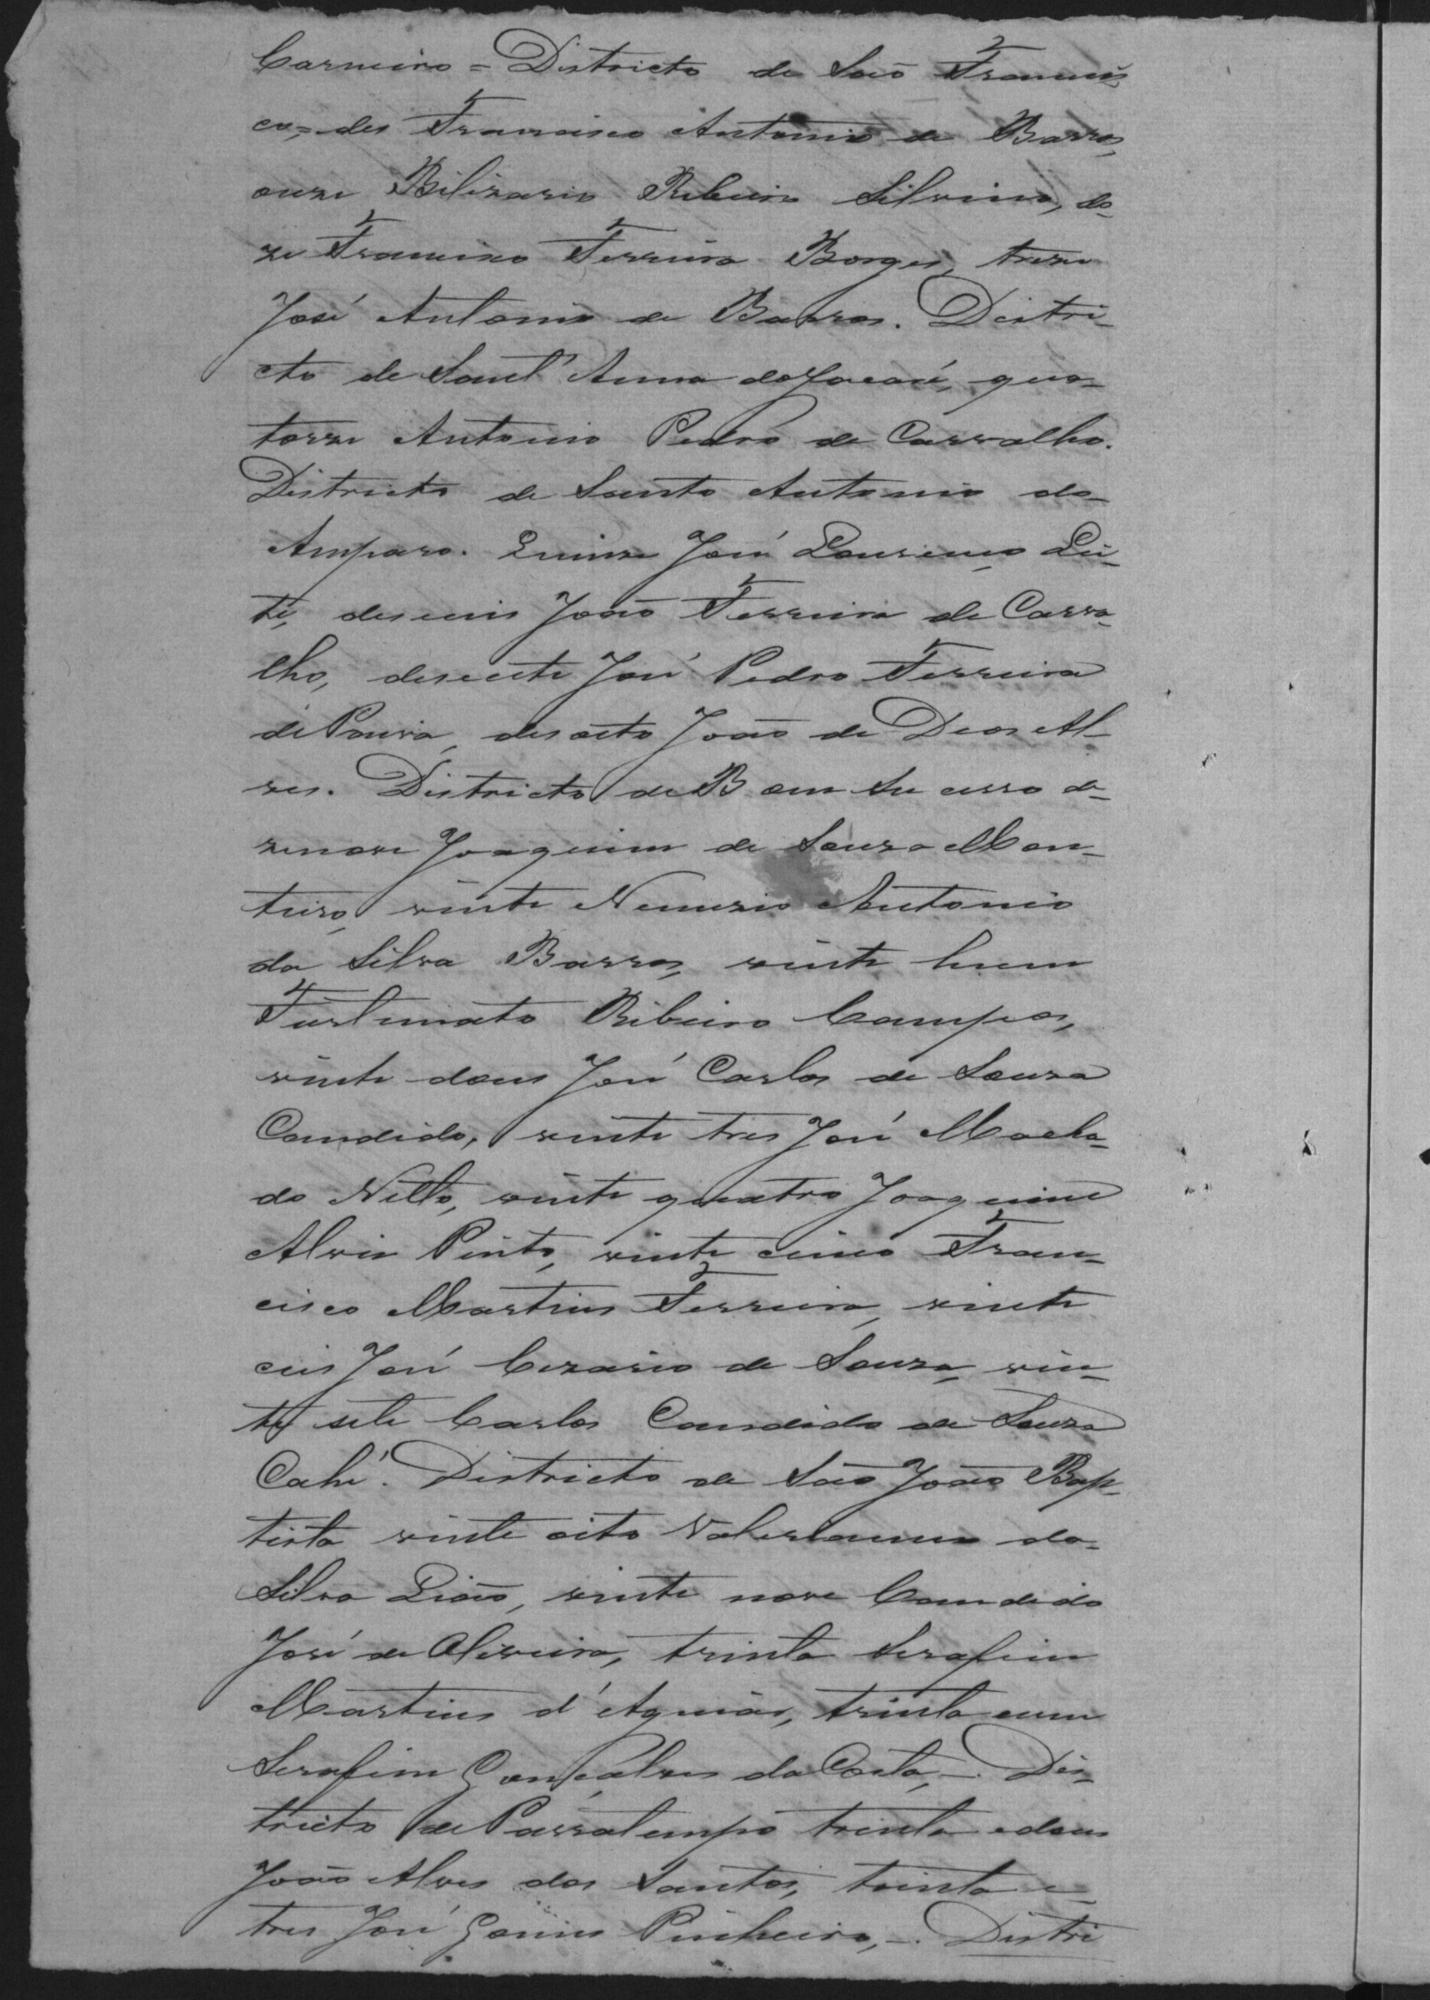 Carneiro = Districto de São Francis
co = des Francisco Antonio de Barros,
onze Bilizario Ribeiro Silvino, do-
ze Francisco Ferreira Borges, treze
José Antonio de Barros. Distri-
cto de Sant'Anna do Jacaré, qua-
torze Antonio Pedro de Carvalho.
Districto de Santo Antonio do
Amparo. Quinze José Lourenço Lei-
te, deseceis João Ferreira de Carva-
lho, desecete José Pedro Ferreira
de Paiva, desoito João de Deos Al-
ves. Districto de Bom Sucesso de-
zenove Joaquim de Souza Mon-
teiro, vinte Nemezio Antonio
da Silva Barros, vinte hum
Furtunato Ribeiro Campos,
vinte dous José Carlos de Souza
Candido, vinte tres José Macha-
do Netto, vinte quatro Joaquim
Alves Pinto, vinte cinco Fran-
cisco Martins Ferreira, vinte
ceis José Cezario de Souza, vin-
te sete Carlos Candido de Souza
Cahé. Districto de São João Bap-
tista vinte oito Valerianno da
Silva Lião, vinte nove Candido
José de Oliveira, trinta Serafim
Martins d'Aguiar, trinta eum
Serafim Gonçalves da Costa, —. Dis-
tricto de Passatempo trinta edous
João Alves dos Santos, trinta e
tres José Gomes Pinheiro, —. Distri